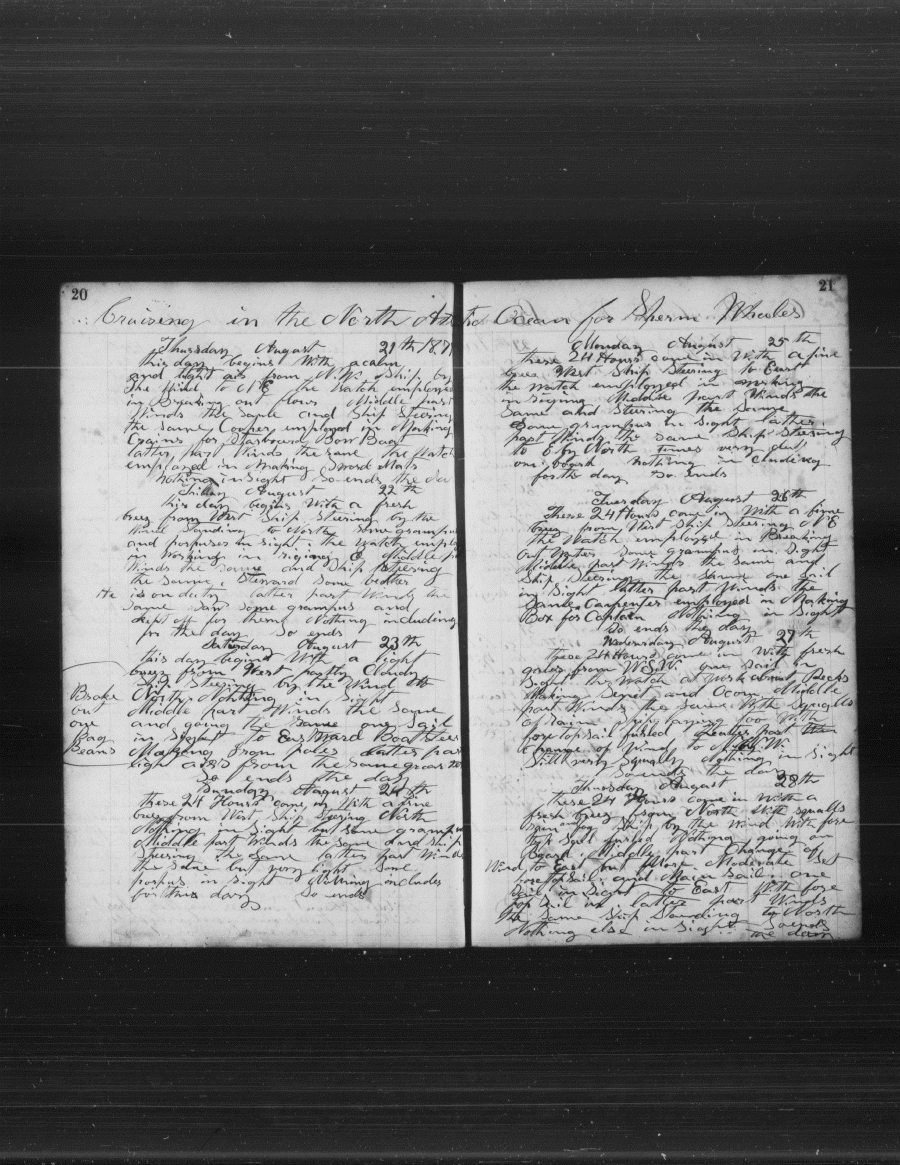 20
Cruising in the North At
Thursday August 21th 187
this day begins With a calm
and light airs from N.W. Ship by
the Wind to NE the Watch employed
in Breaking out flour Middle part
Winds the Same and Ship Steering
the Same Cooper employed in Making
Crains for Starboard Bow Boat
latter part Winds the same the Watch
employed in Making Sword Mats
Nothing in Sight So ends the da
Friday August 22th
this day begins With a fresh
breez from West Ship Steering by the
Wind Standing to North Some grampus
and porpuses in Sight. the Watch emplo
in Working in rigging Middle p
Winds the same and Ship Steering
the Same. Steward Some better
He is on duty latter part Winds the
Same Saw Some grampus and
kept off for them Nothing includeing
for the day So ends
Saturday August 23th
this day begins With a light
breez from West partly Cloudy
Ship Steering by the Wind to
North Nothing in Sight
Middle part Winds the Same
and going the Same one Sail
in Sight to Eastward Boatsteer
from poles latter par
light airs from the Same
So ends the day
Brake
out
one
Bag
Beans
Sunday August 24th
these 24 Hours come in With a fine
breez from West Ship Steering North
Nothing in Sight but Some grampus
Middle part Winds the Same and Ship
Steering the Same latter part Winds
the Same but very light Some
porpus in Sight Nothing includes
for this day So ends
21
tic Ocean for Sperm Whales
Monday August 25th
these 24 Hours come in With a fine
breez West Ship Steering to East
the Watch employed in Working
in riging Middle part Winds the
Same and Steering the Same
Some grampus in Sight latter
part Winds the Same Ship Steering
to E by North times very dull
on board nothing in cludeing
for the day So ends
Tuesday August 26th
These 24 Hours come in With a fine
breez from West Ship Steering NE
the Watch employed in Breaking
out Water Some grampus in Sight
Middle part Winds the Same and
Ship Steering the Same one Sail
in Sight latter part Winds the
Same Carpenter employed in Making
Box for Captain Nothing in Sight
So ends the day
Wednesday August 27th
these 24 Hours come in With fresh
gales from W.S.W. one Sail in
Sight the Watch at Work about Decks
Making Senet and Middle
part Winds the Same With Squalls
of raine Ship laying too With
foretopsail furled latter part the
change of Wind to N.W.
Still very Squally Nothing in Sight
So ends the day
Thursday August 28th
these 24 Hours come in With a
fresh breez from North With Squalls
Ship by the Wind With fore
top Sail furled Nothing going on
Board. Middle part Change of
Wind to East and More Moderate Set
fore top Sail and Main Sail. one
Sail in Sight to East With fore
top Sail in latter part Winds
the Same Ship Standing to North
Nothing else in Sight So ends
the day